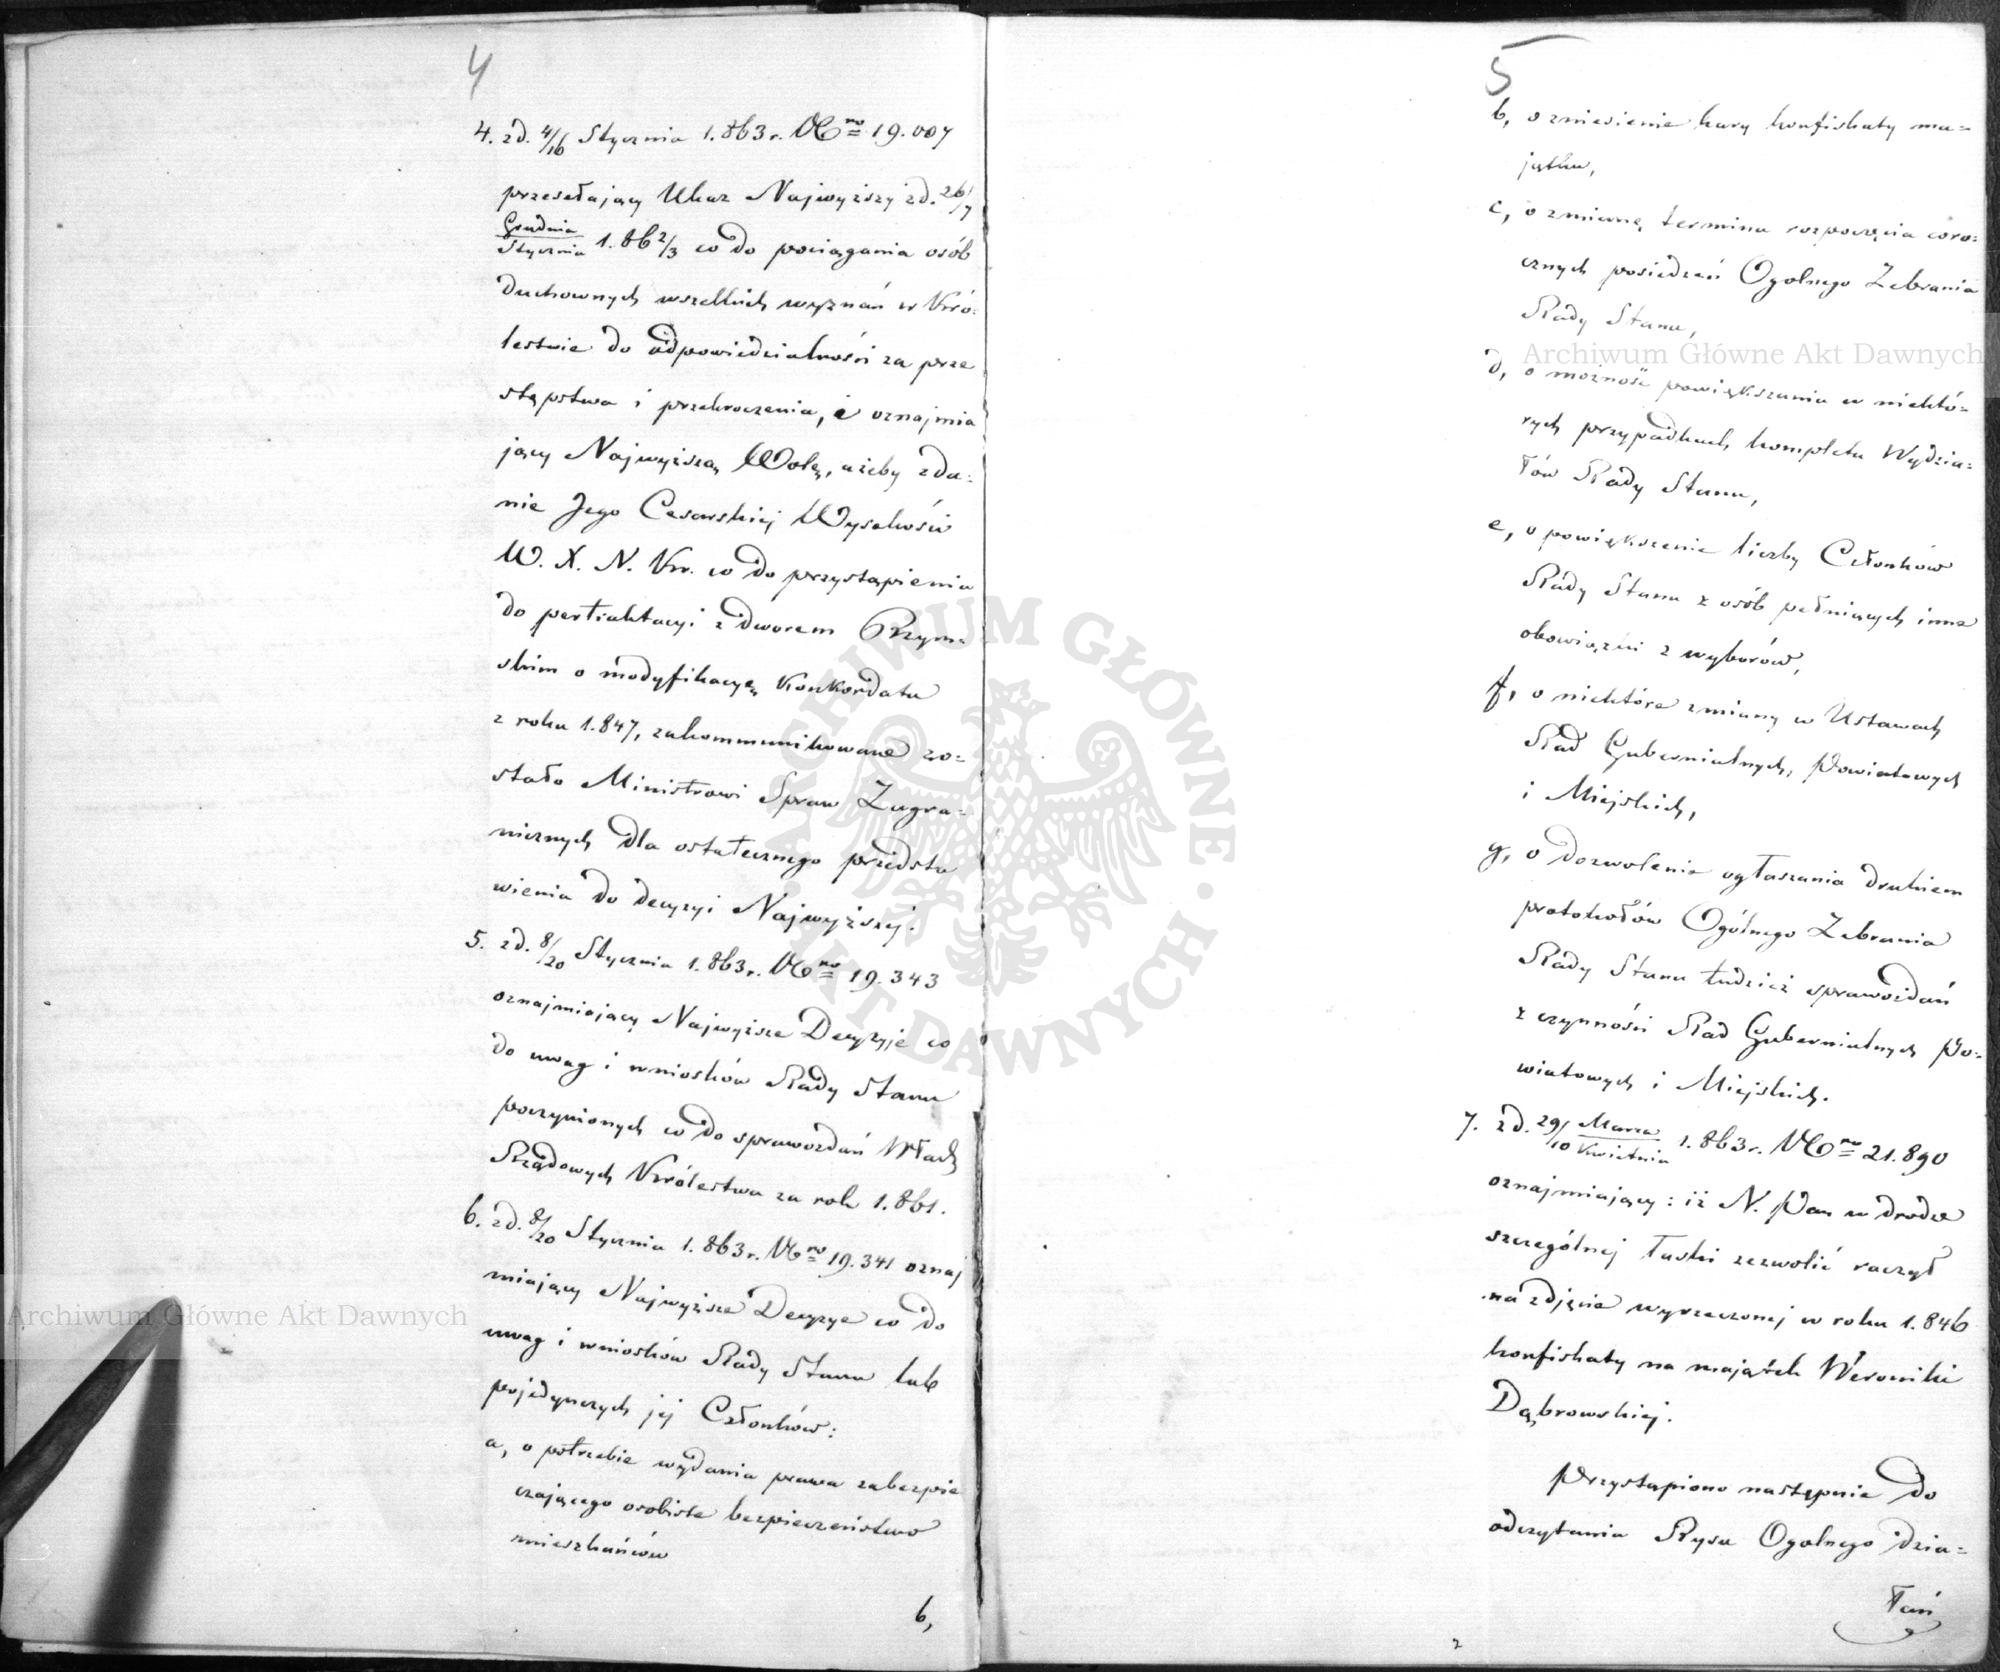 4
4. zd. 4/16 Stycznia 1.863 r. No 19.007
przesełający Ukaz Najwyższy zd. 26/7
Grudnia
Stycznia 1.862/3 co do pociągania osób
duchownych wszelkich wyznań w Kró-
lestwie do odpowiedzialności za prze
stępstwa i przekroczenia, i oznajmia
jący Najwyższą Wolę, ażeby zda-
nie Jego Cesarskiej Wysokości
W. X. N. Kr. co do przystąpienia
do pertraktacyi z dworem Rzym-
skim o modyfikacyę Konkordatu
z roku 1.847, zakommunikowane zo-
stało Ministrowi Spraw Zagra-
nicznych dla ostatecznego przedsta
wienia do decyzyi Najwyższej.
5. zd. 8/20 Stycznia 1.863 r. No 19.343
oznajmiający Najwyższe Decyzyje co
do uwag i wniosków Rady Stanu
poczynionych co do sprawozdań Władz
Rządowych Królestwa za rok 1.861.
6. zd. 8/20 Stycznia 1.863 r. No 19.341 oznaj
miający Najwyższe Decyzye co do
uwag i wniosków Rady Stanu lub
pojedynczych jej Członków:
a, o potrzebie wydania prawa zabezpie
czającego osobiste bezpieczeństwo
mieszkańców
b,
5
b, o zniesienie kary konfiskaty ma-
jątku,
c, o zmianę terminu rozpoczęcia coro-
cznych posiedzeń Ogolnego Zebrania
Rady Stanu,
d, o możność powiększania w niektó-
rych przypadkach kompletu Wydzia-
łów Rady Stanu,
e, o powiększenie liczby Członków
Rady Stanu z osób pełniących inne
obowiązki z wyborów,
f, o niektóre zmiany w Ustawach
Rad Gubernialnych, Powiatowych
i Miejskich,
g, o dozwolenie ogłaszania drukiem
protokołów Ogólnego Zebrania
Rady Stanu tudzież sprawozdań
z czynności Rad Gubernialnych Po-
wiatowych i Miejskich.
7. zd. 29/10 Marca
Kwietnia 1.863 r. No 21.890
oznajmiający: iż N. Pan w drodze
szczególnej łaski zezwolić raczył
na zdjęcie wyrzeczonej w roku 1.846
konfiskaty na majątek Weroniki
Dąbrowskiej.
Przystąpiono następnie do
odczytania Rysu Ogolnego dzia-
łań
2
Archiwum Główne Akt Dawnych
Archiwum Główne Akt Dawnych
ARCHIWUM GŁÓWNE AKT DAWNYCH